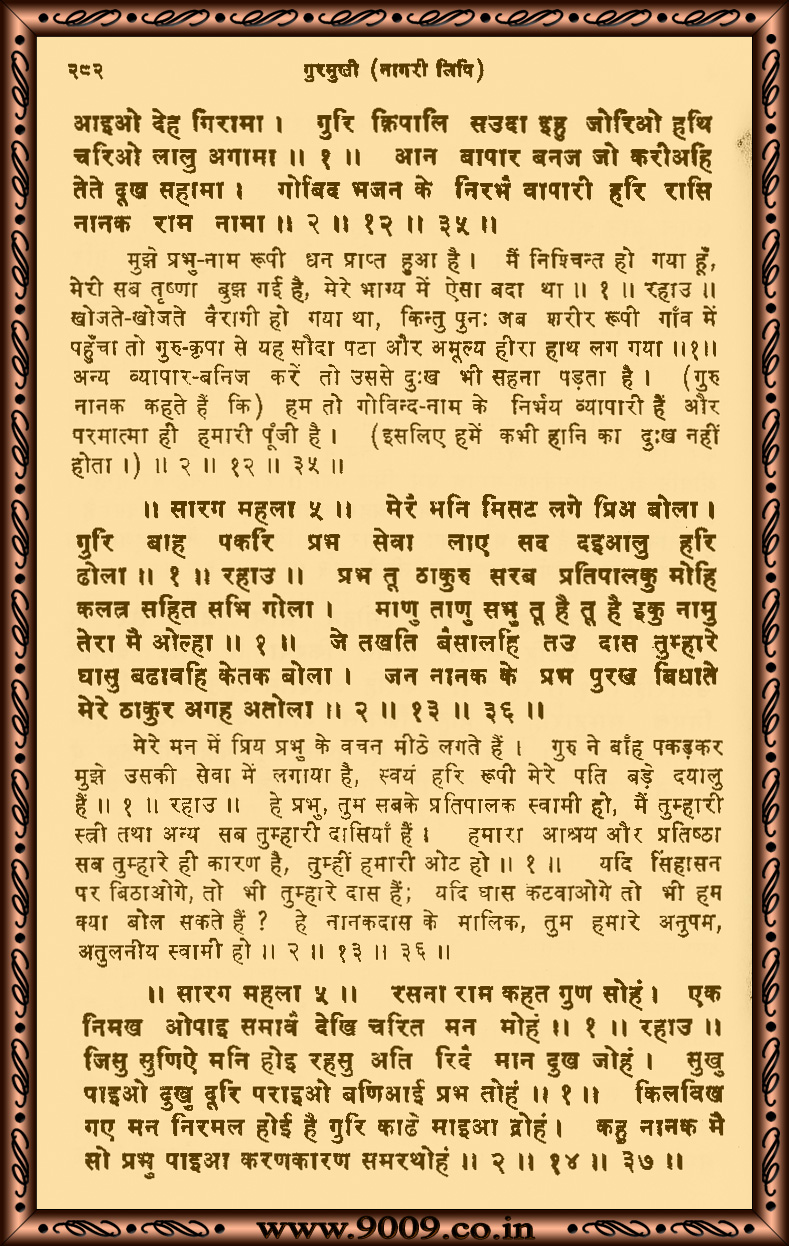 २९२ गुरमुखी (नागरी लिपि)
आइओ देह गिरामा । गुरि क्रिपालि सउदा इहु जोरिओ हथि
चरिओ लालु अगामा ॥ १ ॥ आन बापार बनज जो करीअहि
तेते दूख सहामा । गोबिद भजन के निरभै वापारी हरि रासि
नानक राम नामा ॥ २ ॥ १२ ॥ ३५ ॥
मुझे प्रभु-नाम रूपी धन प्राप्त हुआ है । मैं निश्चिन्त हो गया हूँ,
मेरी सब तृष्णा बुझ गई है, मेरे भाग्य में ऐसा बदा था ॥ १ ॥ रहाउ ॥
खोजते-खोजते वैरागी हो गया था, किन्तु पुनः जब शरीर रूपी गाँव में
पहुँचा तो गुरु-कृपा से यह सौदा पटा और अमूल्य हीरा हाथ लग गया ॥१॥
अन्य व्यापार-बनिज करें तो उससे दुःख भी सहना पड़ता है । (गुरु
नानक कहते हैं कि) हम तो गोविन्द-नाम के निर्भय व्यापारी हैं और
परमात्मा ही हमारी पूँजी है । (इसलिए हमें कभी हानि का दुःख नहीं
होता ।) ॥ २ ॥ १२ ॥ ३५ ॥
॥ सारग महला ५ ॥ मेरै मनि मिसट लगे प्रिअ बोला ।
गुरि बाह पकरि प्रभ सेवा लाए सद दइआलु हरि
ढोला ॥ १ ॥ रहाउ ॥ प्रभ तू ठाकुरु सरब प्रतिपालकु मोहि
कलत्र सहित सभि गोला । माणु ताणु सभु तू है तू है इकु नामु
तेरा मै ओल्हा ॥ १ ॥ जे तखति बैसालहि तउ दास तुम्हारे
घासु बढावहि केतक बोला । जन नानक के प्रभ पुरख बिधाते
मेरे ठाकुर अगह अतोला ॥ २ ॥ १३ ॥ ३६ ॥
मेरे मन में प्रिय प्रभु के वचन मीठे लगते हैं । गुरु ने बाँह पकड़कर
मुझे उसकी सेवा में लगाया है, स्वयं हरि रूपी मेरे पति बड़े दयालु
हैं ॥ १ ॥ रहाउ ॥ हे प्रभु, तुम सबके प्रतिपालक स्वामी हो, मैं तुम्हारी
स्त्री तथा अन्य सब तुम्हारी दासियाँ हैं । हमारा आश्रय और प्रतिष्ठा
सब तुम्हारे ही कारण है, तुम्हीं हमारी ओट हो ॥ १ ॥ यदि सिंहासन
पर बिठाओगे, तो भी तुम्हारे दास हैं; यदि घास कटवाओगे तो भी हम
क्या बोल सकते हैं ? हे नानकदास के मालिक, तुम हमारे अनुपम,
अतुलनीय स्वामी हो ॥ २ ॥ १३ ॥ ३६ ॥
॥ सारग महला ५ ॥ रसना राम कहत गुण सोहं । एक
निमख ओपाइ समावै देखि चरित मन मोहं ॥ १ ॥ रहाउ ॥
जिसु सुणिऐ मनि होइ रहसु अति रिदै मान दुख जोहं । सुखु
पाइओ दुखु दूरि पराइओ बणिआई प्रभ तोहं ॥ १ ॥ किलविख
गए मन निरमल होई है गुरि काढे माइआ द्रोहं । कहु नानक मै
सो प्रभु पाइआ करणकारण समरथोहं ॥ २ ॥ १४ ॥ ३७ ॥
www.9009.co.in